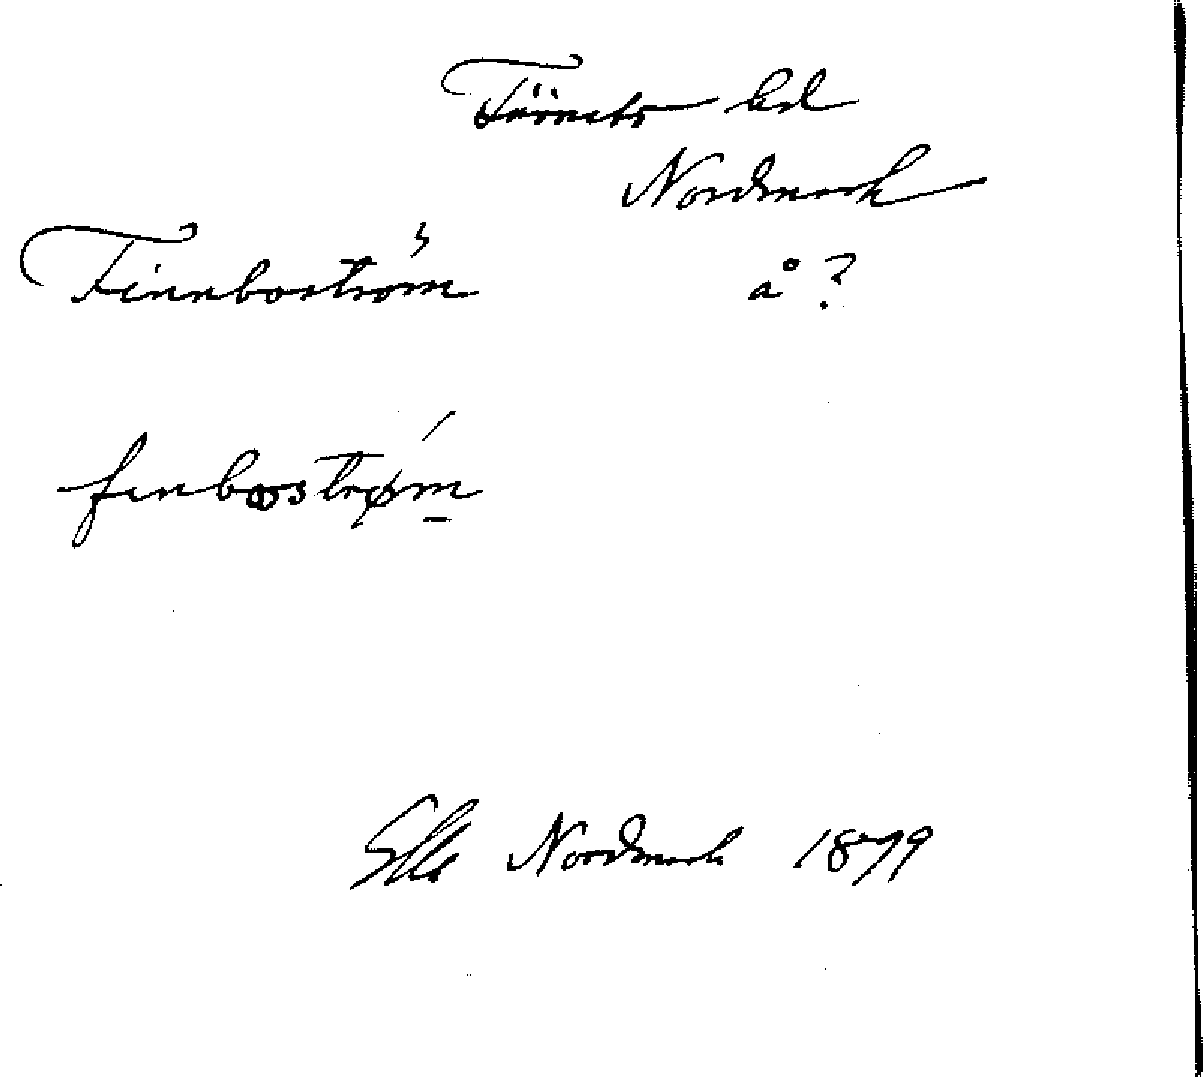 Färnebo hd
Nordmark
Finnboström å?
finboström
Nordmark 1879